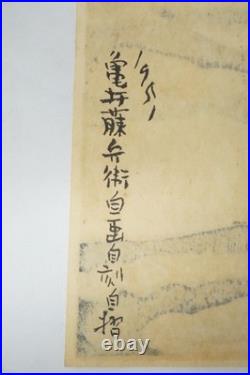 1951
亀井藤兵衛自画自刻自摺